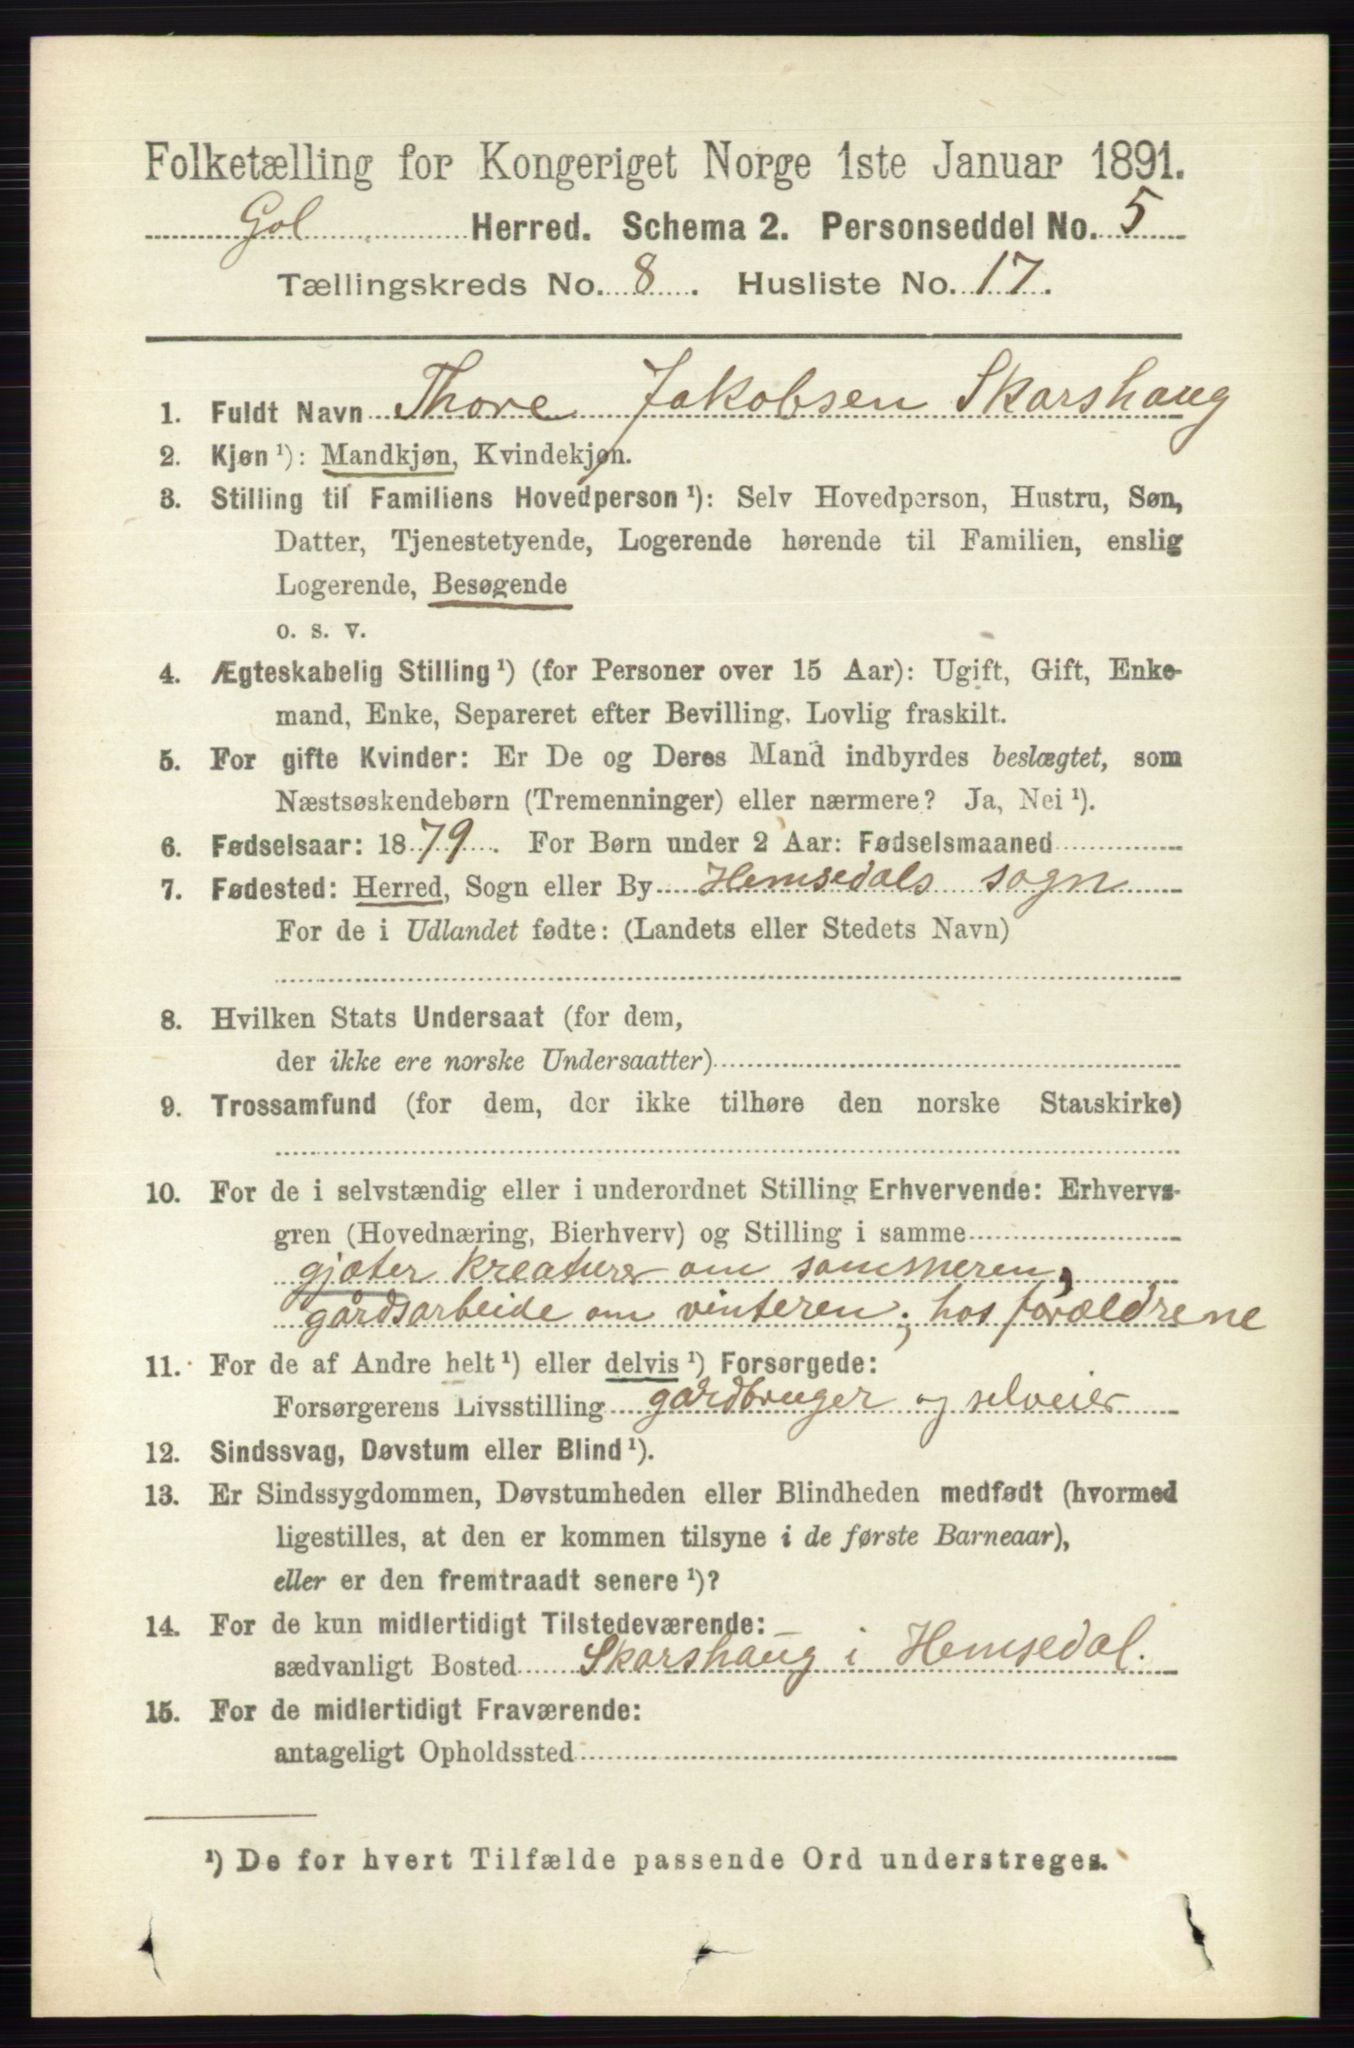 Folketælling for Kongeriget Norge 1ste Januar 1891.
Gol Herred. Schema 2. Personseddel No. 5
Tællingskreds No. 8. Husliste No. 17.
1. Fuldt Navn Thore Jakobsen Skarshaug
2. Kjøn ¹): Mandkjøn, Kvindekjøn.
3. Stilling til Familiens Hovedperson ¹): Selv Hovedperson, Hustru, Søn,
Datter, Tjenestetyende, Logerende hørende til Familien, enslig
Logerende, Besøgende
o. s. v.
4. Ægteskabelig Stilling ¹) (for Personer over 15 Aar): Ugift, Gift, Enke-
mand, Enke, Separeret efter Bevilling. Lovlig fraskilt.
5. For gifte Kvinder: Er De og Deres Mand indbyrdes beslægtet, som
Næstsøskendebørn (Tremenninger) eller nærmere? Ja, Nei ¹).
6. Fødselsaar: 1879. For Børn under 2 Aar: Fødselsmaaned
7. Fødested: Herred, Sogn eller By Hemsedals sogn
For de i Udlandet fødte: (Landets eller Stedets Navn)
8. Hvilken Stats Undersaat (for dem,
der ikke ere norske Undersaatter)
9. Trossamfund (for dem, der ikke tilhøre den norske Statskirke)
10. For de i selvstændig eller i underordnet Stilling Erhvervende: Erhvervs-
gren (Hovednæring, Bierhverv) og Stilling i samme
gjæter kreaturer om sommeren,
gårdsarbeide om vinteren; hos forældrene
11. For de af Andre helt ¹) eller delvis ¹) Forsørgede:
Forsørgerens Livsstilling gårdbruger og selveier
12. Sindssvag, Døvstum eller Blind ¹).
13. Er Sindssygdommen, Døvstumheden eller Blindheden medfødt (hvormed
ligestilles, at den er kommen tilsyne i de første Barneaar),
eller er den fremtraadt senere ¹)?
14. For de kun midlertidigt Tilstedeværende:
sædvanligt Bosted Skarshaug i Hemsedal.
15. For de midlertidigt Fraværende:
antageligt Opholdssted
¹) De for hvert Tilfælde passende Ord understreges.